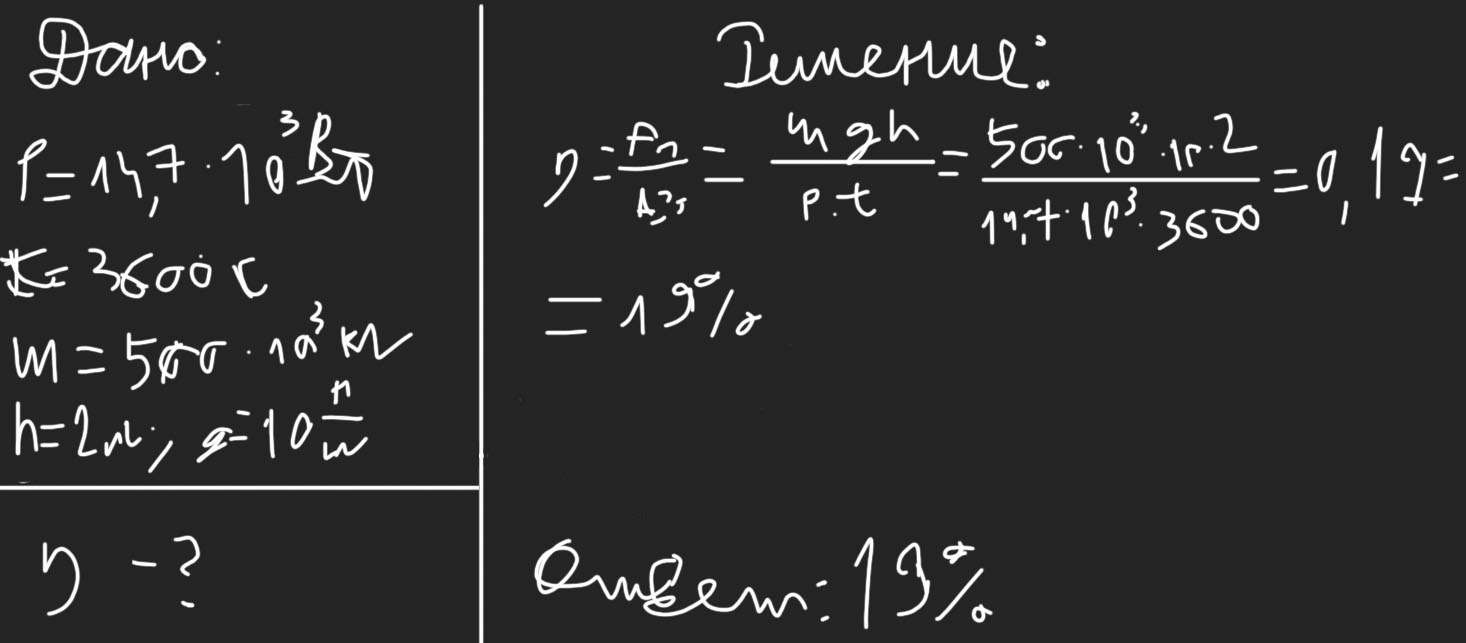 Дано:
P = 14,7 · 10³ Вт
t = 3600 с
m = 500 · 10³ кг
h = 2 м, g = 10 Н/м
η - ?
Решение:
η = Aп/Aз = mgh/p·t = 500·10³·10·2/14,7·10³·3600 = 0,19 =
= 19%
Ответ: 19%